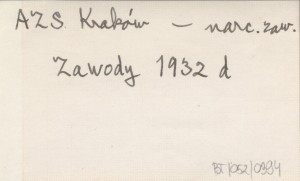 AZS Kraków – narc. zaw.
Zawody 1932 d
BT/052/0994